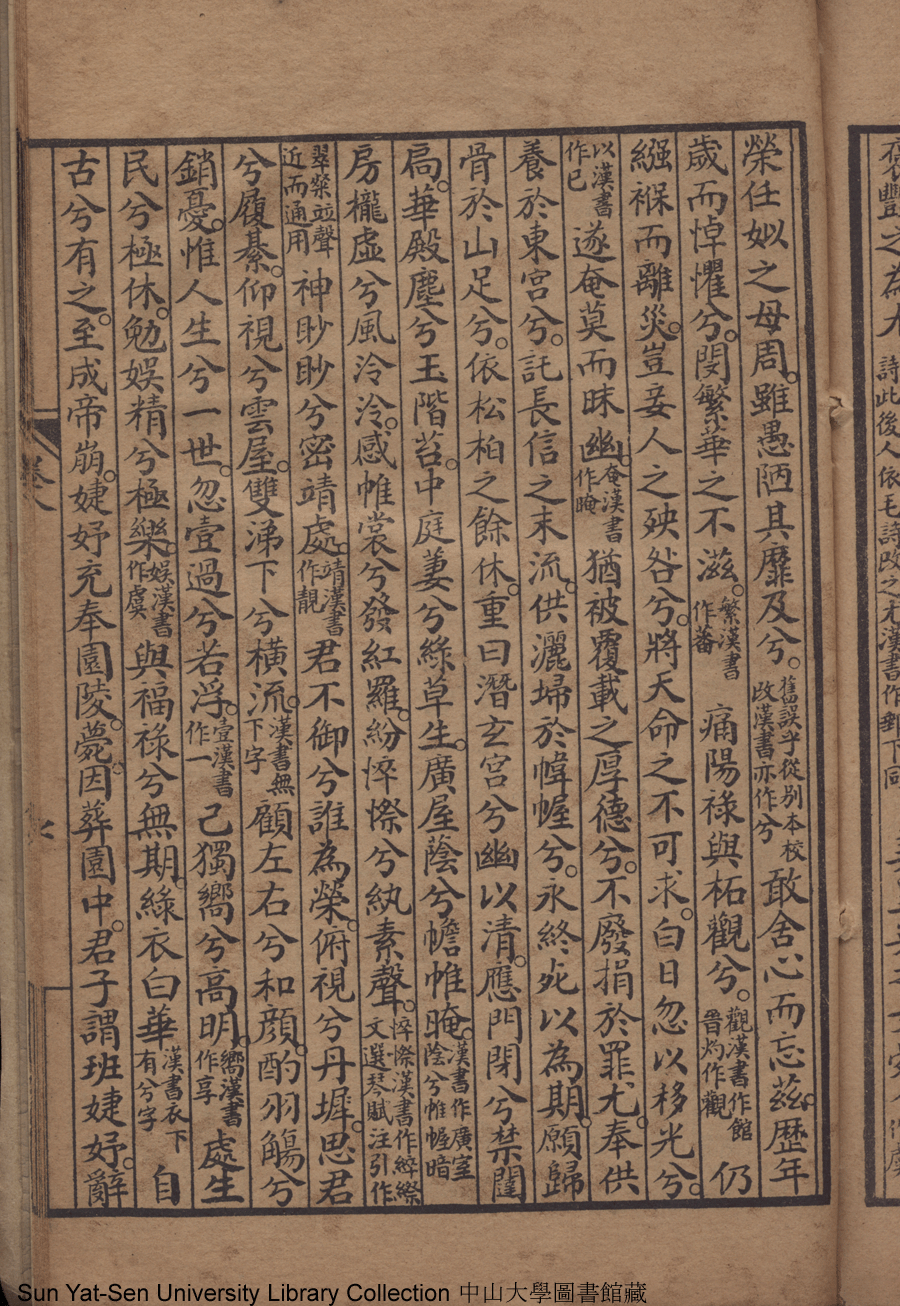 榮任姒之母周。雖愚陋其靡及兮。舊誤乎從别本校改漢書亦作兮敢舍心而忘茲。歷年
歲而悼懼兮。閔繁華之不滋。繁漢書作蕃痛陽祿與柘觀兮。觀漢書作館晉灼作觀仍
繈褓而離災。豈妾人之殃咎兮。將天命之不可求。白日忽以移光兮。
以漢書作已遂奄莫而昧幽。奄漢書作晻猶被覆載之厚德兮。不廢捐於罪尤。奉供
養於東宮兮。託長信之末流。供灑埽於幃幄兮。永終死以為期。願歸
骨於山足兮。依松柏之餘休。重曰潛玄宮兮幽以清。應門閉兮禁闥
扃。華殿塵兮玉階苔。中庭萋兮綠草生。廣屋蔭兮幨帷晻。漢書作廣室陰兮帷幄暗
房櫳虛兮風泠泠。感帷裳兮發紅羅。紛悴憏兮紈素聲。悴憏漢書作綷縩文選琴賦注引作
翠粲竝聲近而通用神眇眇兮密靖處。靖漢書作靚君不御兮誰為榮。俯視兮丹墀。思君
兮履綦。仰視兮雲屋。雙涕下兮橫流。漢書無下字顧左右兮和顏。酌羽觴兮
銷憂。惟人生兮一世。忽壹過兮若浮。壹漢書作一己獨嚮兮高明。嚮漢書作享處生
民兮極休。勉娛精兮極樂。娛漢書作虞與福祿兮無期。綠衣白華漢書衣下有兮字自
古兮有之。至成帝崩。婕妤充奉園陵。薨。因葬園中。君子謂班婕妤。辭
卷八
七
之為
詩此後人依毛詩改之
漢書作郵下同